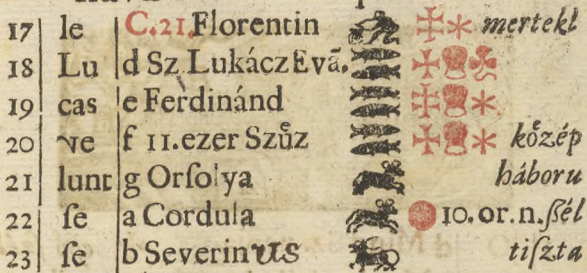 17 le C.21. Florentin mertekl
18 Lu d Sz. Lukácz Evã.
19 cas e Ferdinánd
20 ve f 11.ezer Szűz kőzép
21 lunt g Orſolya háboru
22 ſe a Cordula 10.or.n.ſzél
23 ſe b Severinus tiſzta